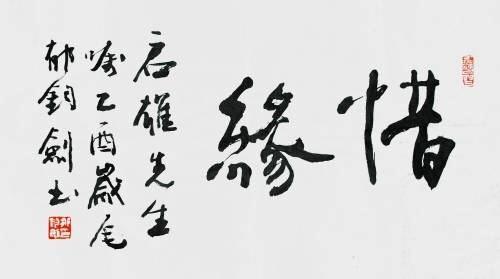 惜緣
应雄先生
嘱乙酉歲尾
郁鈞劍书